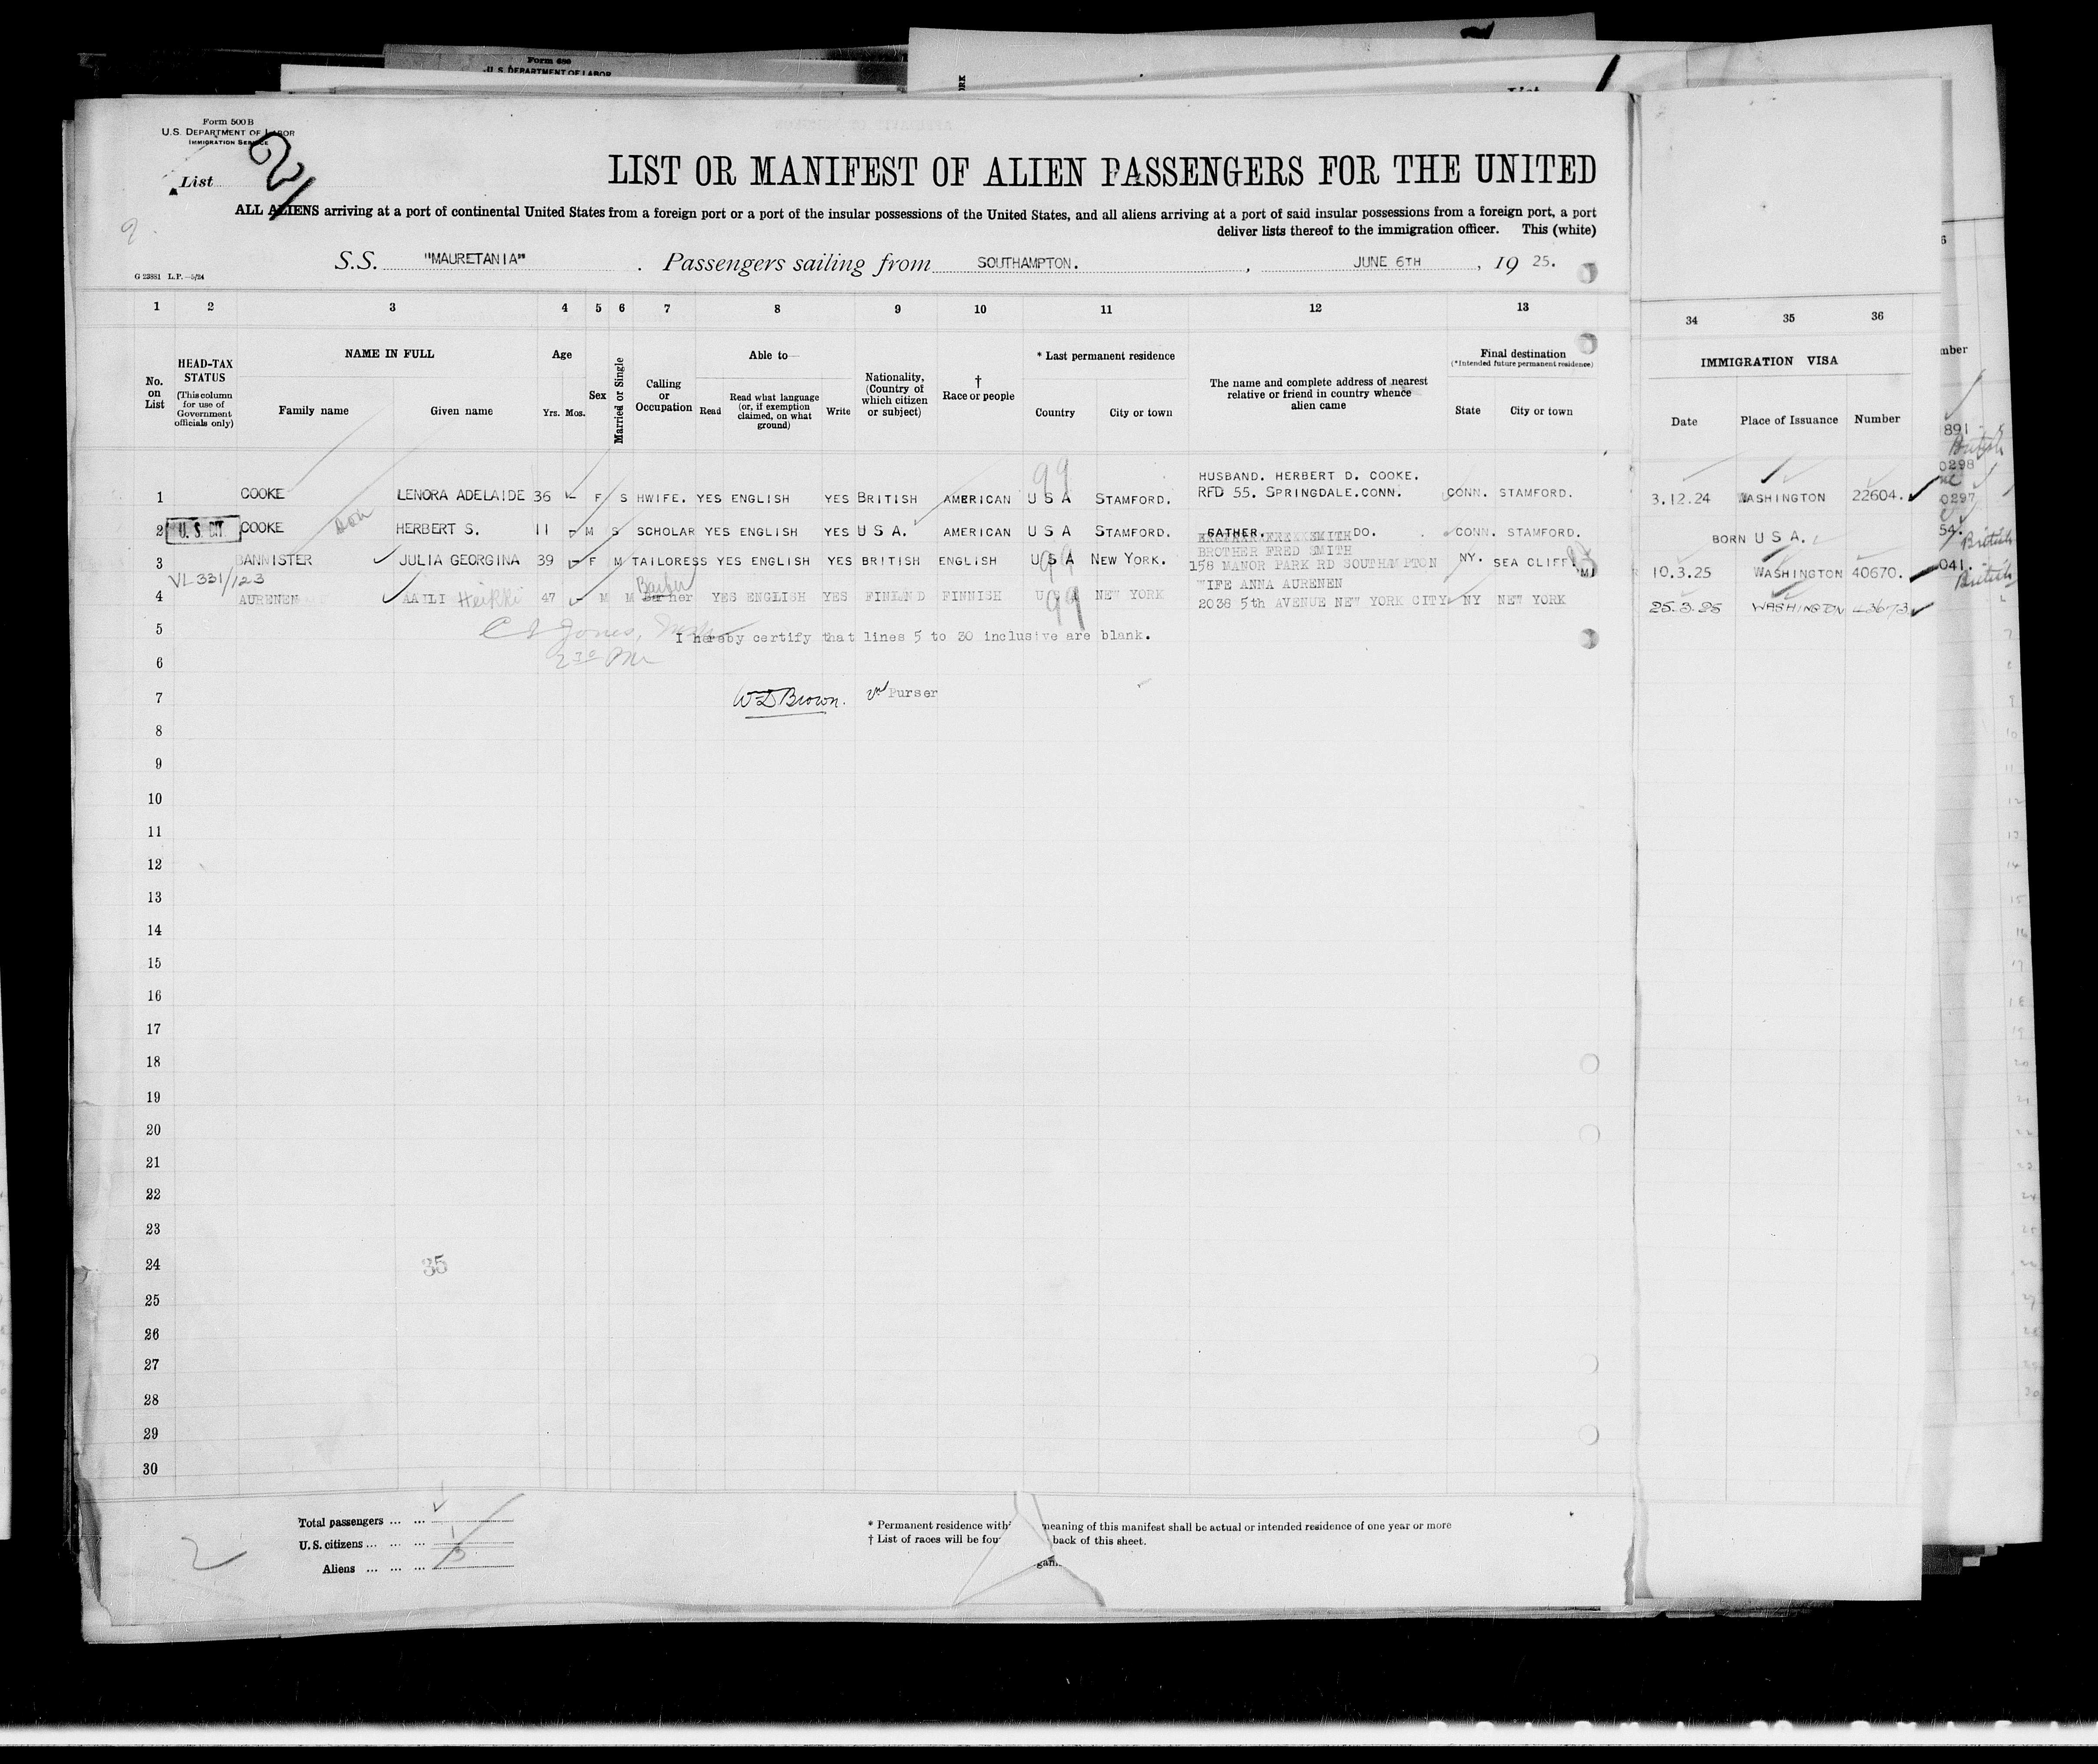 Form 686
U.S. DEPARTMENT OF LABOR
Form 500 B
U.S. DEPARTMENT OF LABOR
IMMIGRATION SERVICE
List 21
LIST OR MANIFEST OF ALIEN PASSENGERS FOR THE UNITED
ALL ALIENS arriving at a port of continental United States from a foreign port or a port of the insular possessions of the United States, and all aliens arriving at a port of said insular possessions from a foreign port, a port
deliver lists thereof to the immigration officer. This (white)
G 23881 L.P.—5/24
S.S. "MAURETANIA" . Passengers sailing from SOUTHAMPTON. , JUNE 6TH , 19 25.
1 2 3 4 5 6 7 8 9 10 11 12 13 34 35 36
No. on List
HEAD-TAX STATUS
(This column for use of Government officials only)
NAME IN FULL
Family name Given name
Age
Yrs. Mos.
Sex
Married or Single
Calling or Occupation
Able to
Read
Read what language (or, if exemption claimed, on what ground)
Write
Nationality, (Country of which citizen or subject)
† Race or people
* Last permanent residence
Country City or town
The name and complete address of nearest relative or friend in country whence alien came
Final destination
(*Intended future permanent residence)
State City or town
IMMIGRATION VISA
Date Place of Issuance Number
99 HUSBAND. HERBERT D. COOKE.
1 COOKE LENORA ADELAIDE 36 F S HWIFE. YES ENGLISH YES BRITISH AMERICAN U S A STAMFORD. RFD 55. SPRINGDALE.CONN. CONN. STAMFORD. 3.12.24 WASHINGTON 22604.
2 U. S. CIT. COOKE HERBERT S. 11 M S SCHOLAR YES ENGLISH YES U S A. AMERICAN U S A STAMFORD. FATHER. DO. CONN. STAMFORD. BORN U S A.
BROTHER FRED SMITH
3 BANNISTER JULIA GEORGINA 39 F M TAILORESS YES ENGLISH YES BRITISH ENGLISH U S A NEW YORK. 158 MANOR PARK RD SOUTHAMPTON NY. SEA CLIFF. 10.3.25 WASHINGTON 40670.
VL 331/123 Barber WIFE ANNA AURENEN
4 AURENEN AAILI Heikki 47 M M YES ENGLISH YES FINLAND FINNISH U S A 99 NEW YORK 2036 5th AVENUE NEW YORK CITY NY NEW YORK 25.3.25 WASHINGTON 43673
5 I hereby certify that lines 5 to 30 inclusive are blank.
6
7 W D Brown. Purser
8
9
10
11
12
13
14
15
16
17
18
19
20
21
22
23
24 35
25
26
27
28
29
30
Total passengers ... ...
U.S. citizens ... ... ... 1
Aliens ... ... ... 3
2
* Permanent residence with meaning of this manifest shall be actual or intended residence of one year or more
† List of races will be fou back of this sheet.
mber
891
British
0298
0297
54.
British
041.
British